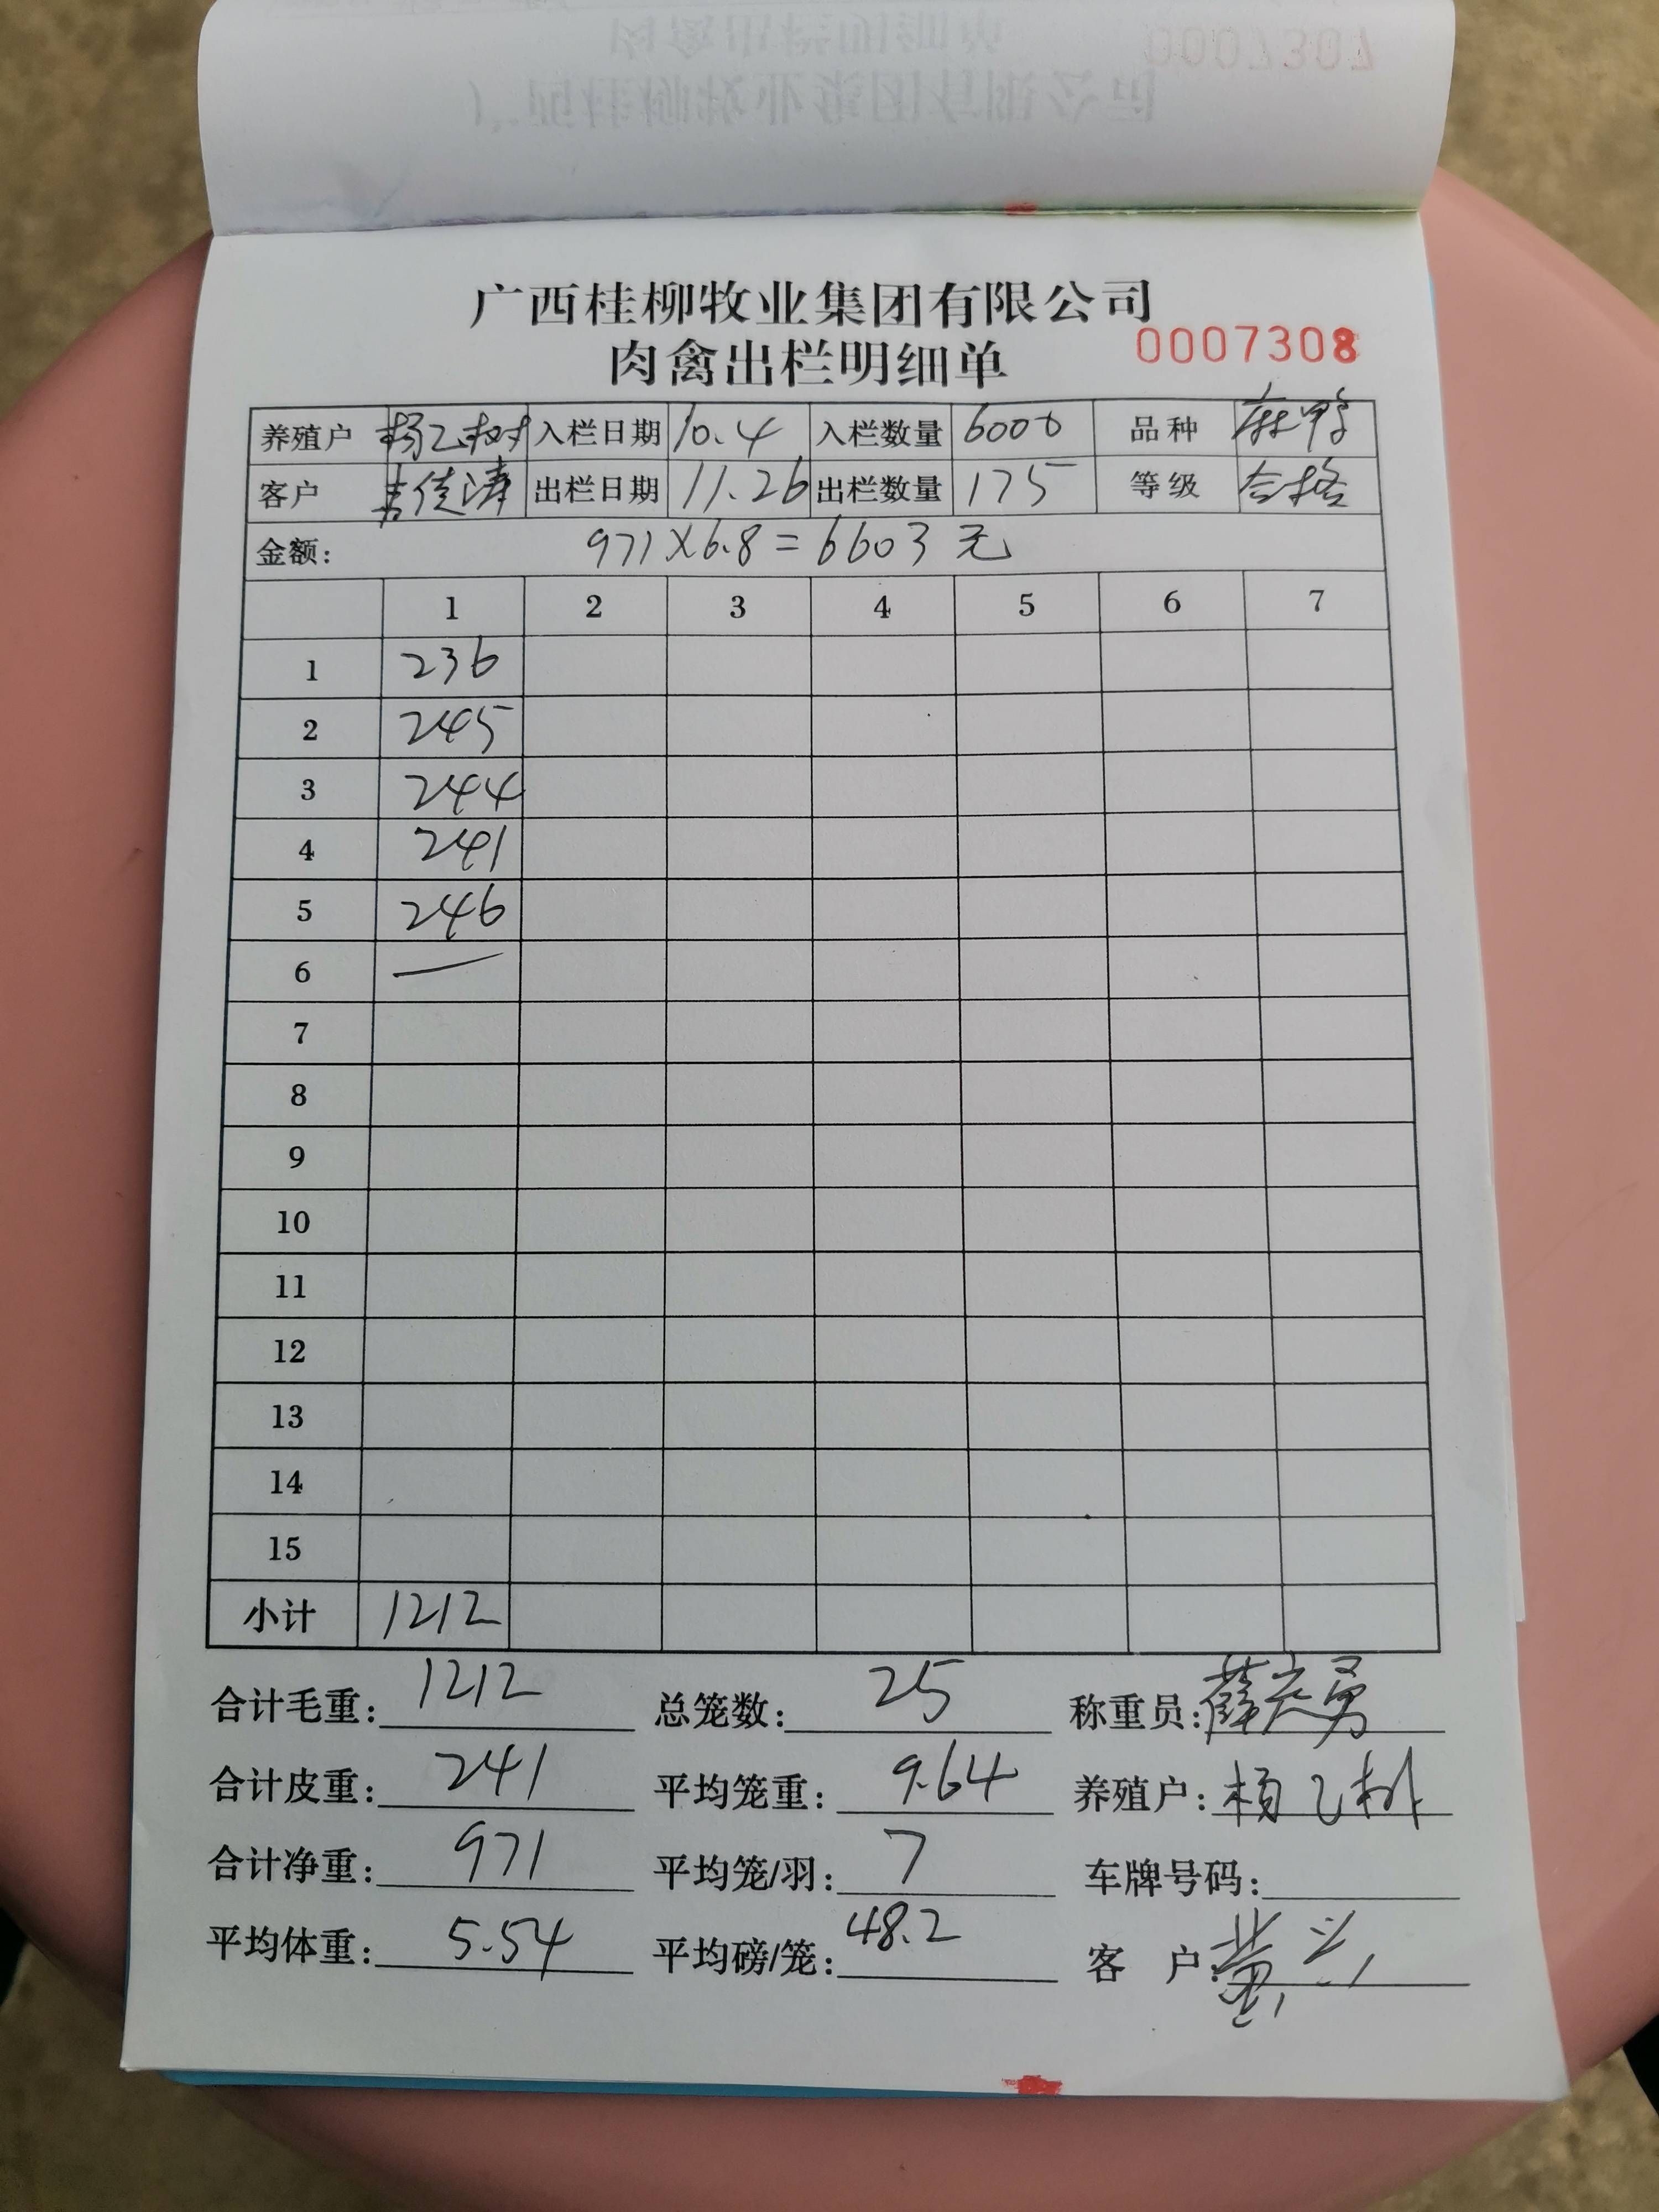 广西桂柳牧业集团有限公司
肉禽出栏明细单 0007308
养殖户 杨乙树 入栏日期 10.4 入栏数量 6000 品种 麻鸭
客户 佳涛 出栏日期 11.26 出栏数量 175 等级 合格
金额: 971×6.8=6603元
1 2 3 4 5 6 7
1 236
2 245
3 244
4 241
5 246
6 —
7
8
9
10
11
12
13
14
15
小计 1212
合计毛重: 1212 总笼数: 25 称重员: 薛庆勇
合计皮重: 241 平均笼重: 9.64 养殖户: 杨乙树
合计净重: 971 平均笼/羽: 7 车牌号码:
平均体重: 5.54 平均磅/笼: 48.2 客 户: 黄